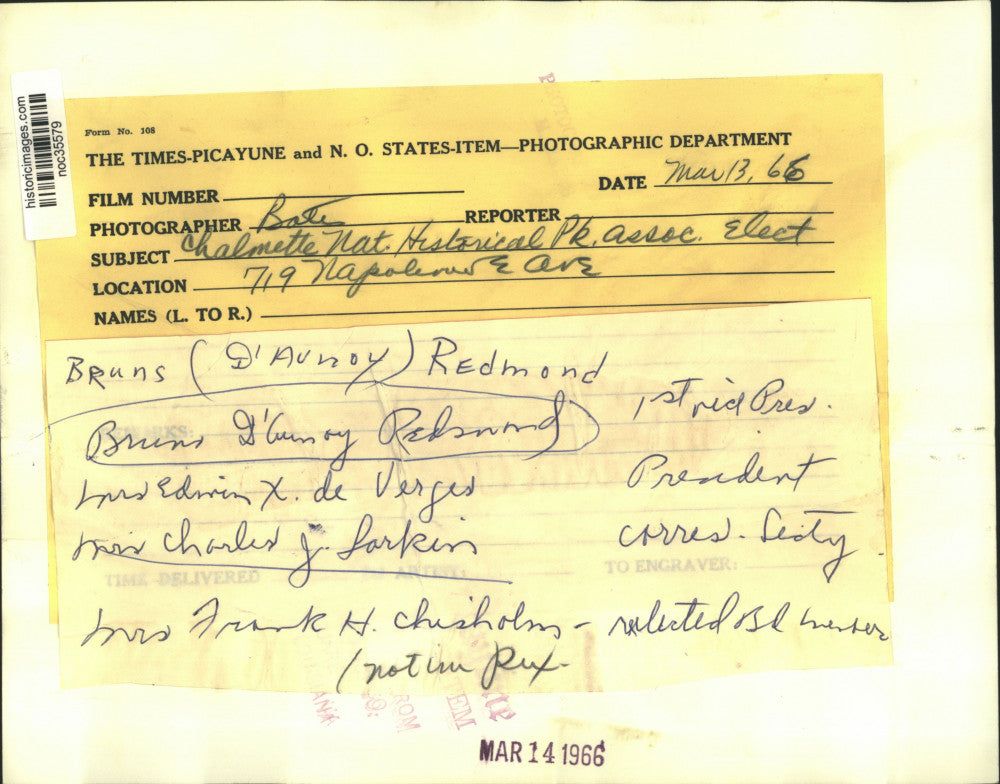 historicimages.com
noc35579
Form No. 108
THE TIMES-PICAYUNE and N. O. STATES-ITEM—PHOTOGRAPHIC DEPARTMENT
DATE Mar 13, 66
FILM NUMBER
PHOTOGRAPHER Bates REPORTER
SUBJECT Chalmette Nat. Historical Pk. Assoc. Elect
LOCATION 719 Napoleon Ave
NAMES (L. TO R.)
Bruns (D'Aunoy) Redmond
1st vice Pres.
Bruns D'Aunoy Redmond
Mrs Edwin X. de Verges President
Mrs Charles J. Larkin Corres. Secty
TIME DELIVERED TO ARTIST: TO ENGRAVER:
Mrs Frank H. Chisholm - reelected Bd member
(not in Pix-
ROM
EM
MAR 14 1966